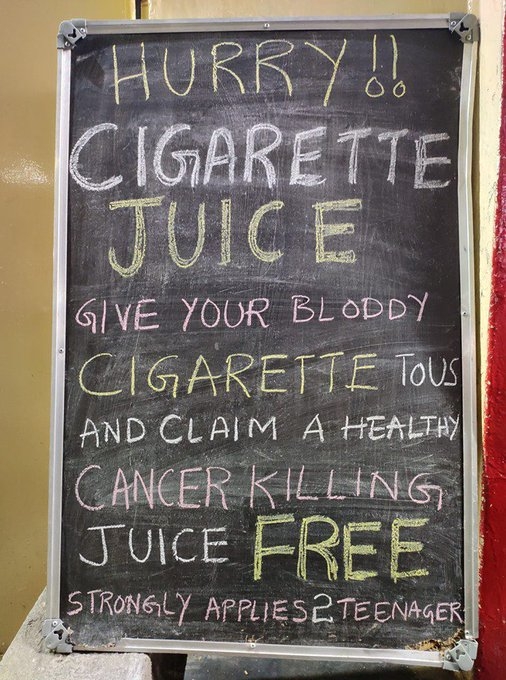 HURRY!!
CIGARETTE
JUICE
GIVE YOUR BLODDY
CIGARETTE TO US
AND CLAIM A HEALTHY
CANCER KILLING
JUICE FREE
STRONGLY APPLIES 2 TEENAGER